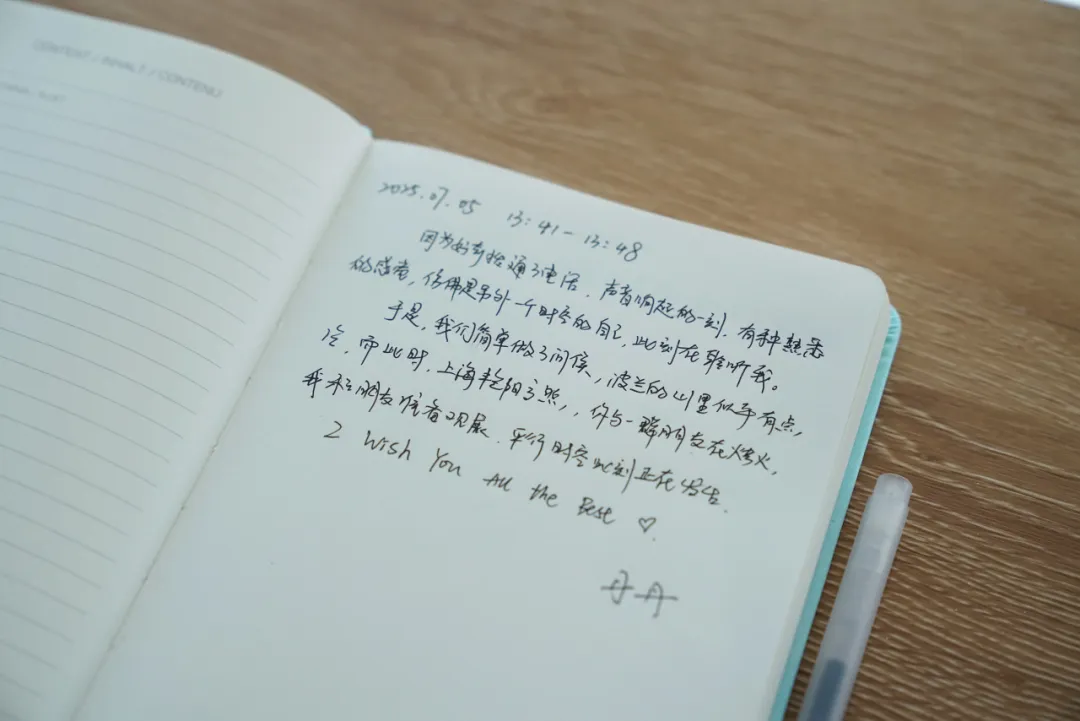 CONTENT / INHALT / CONTENU
2025.07.05 13:41-13:48
因为好奇拾通了电话，声音响起的一刻，有种熟悉
的感觉，仿佛是另外一个时空的自己，此刻在聆听我。
于是，我们简单做了问候，波兰的山里似乎有点
冷，而此时，上海艳阳高照，你与一群朋友在烤火，
我和朋友准备观展，平行时空此刻正在发生.
I Wish You All the Best ♡.
丹丹